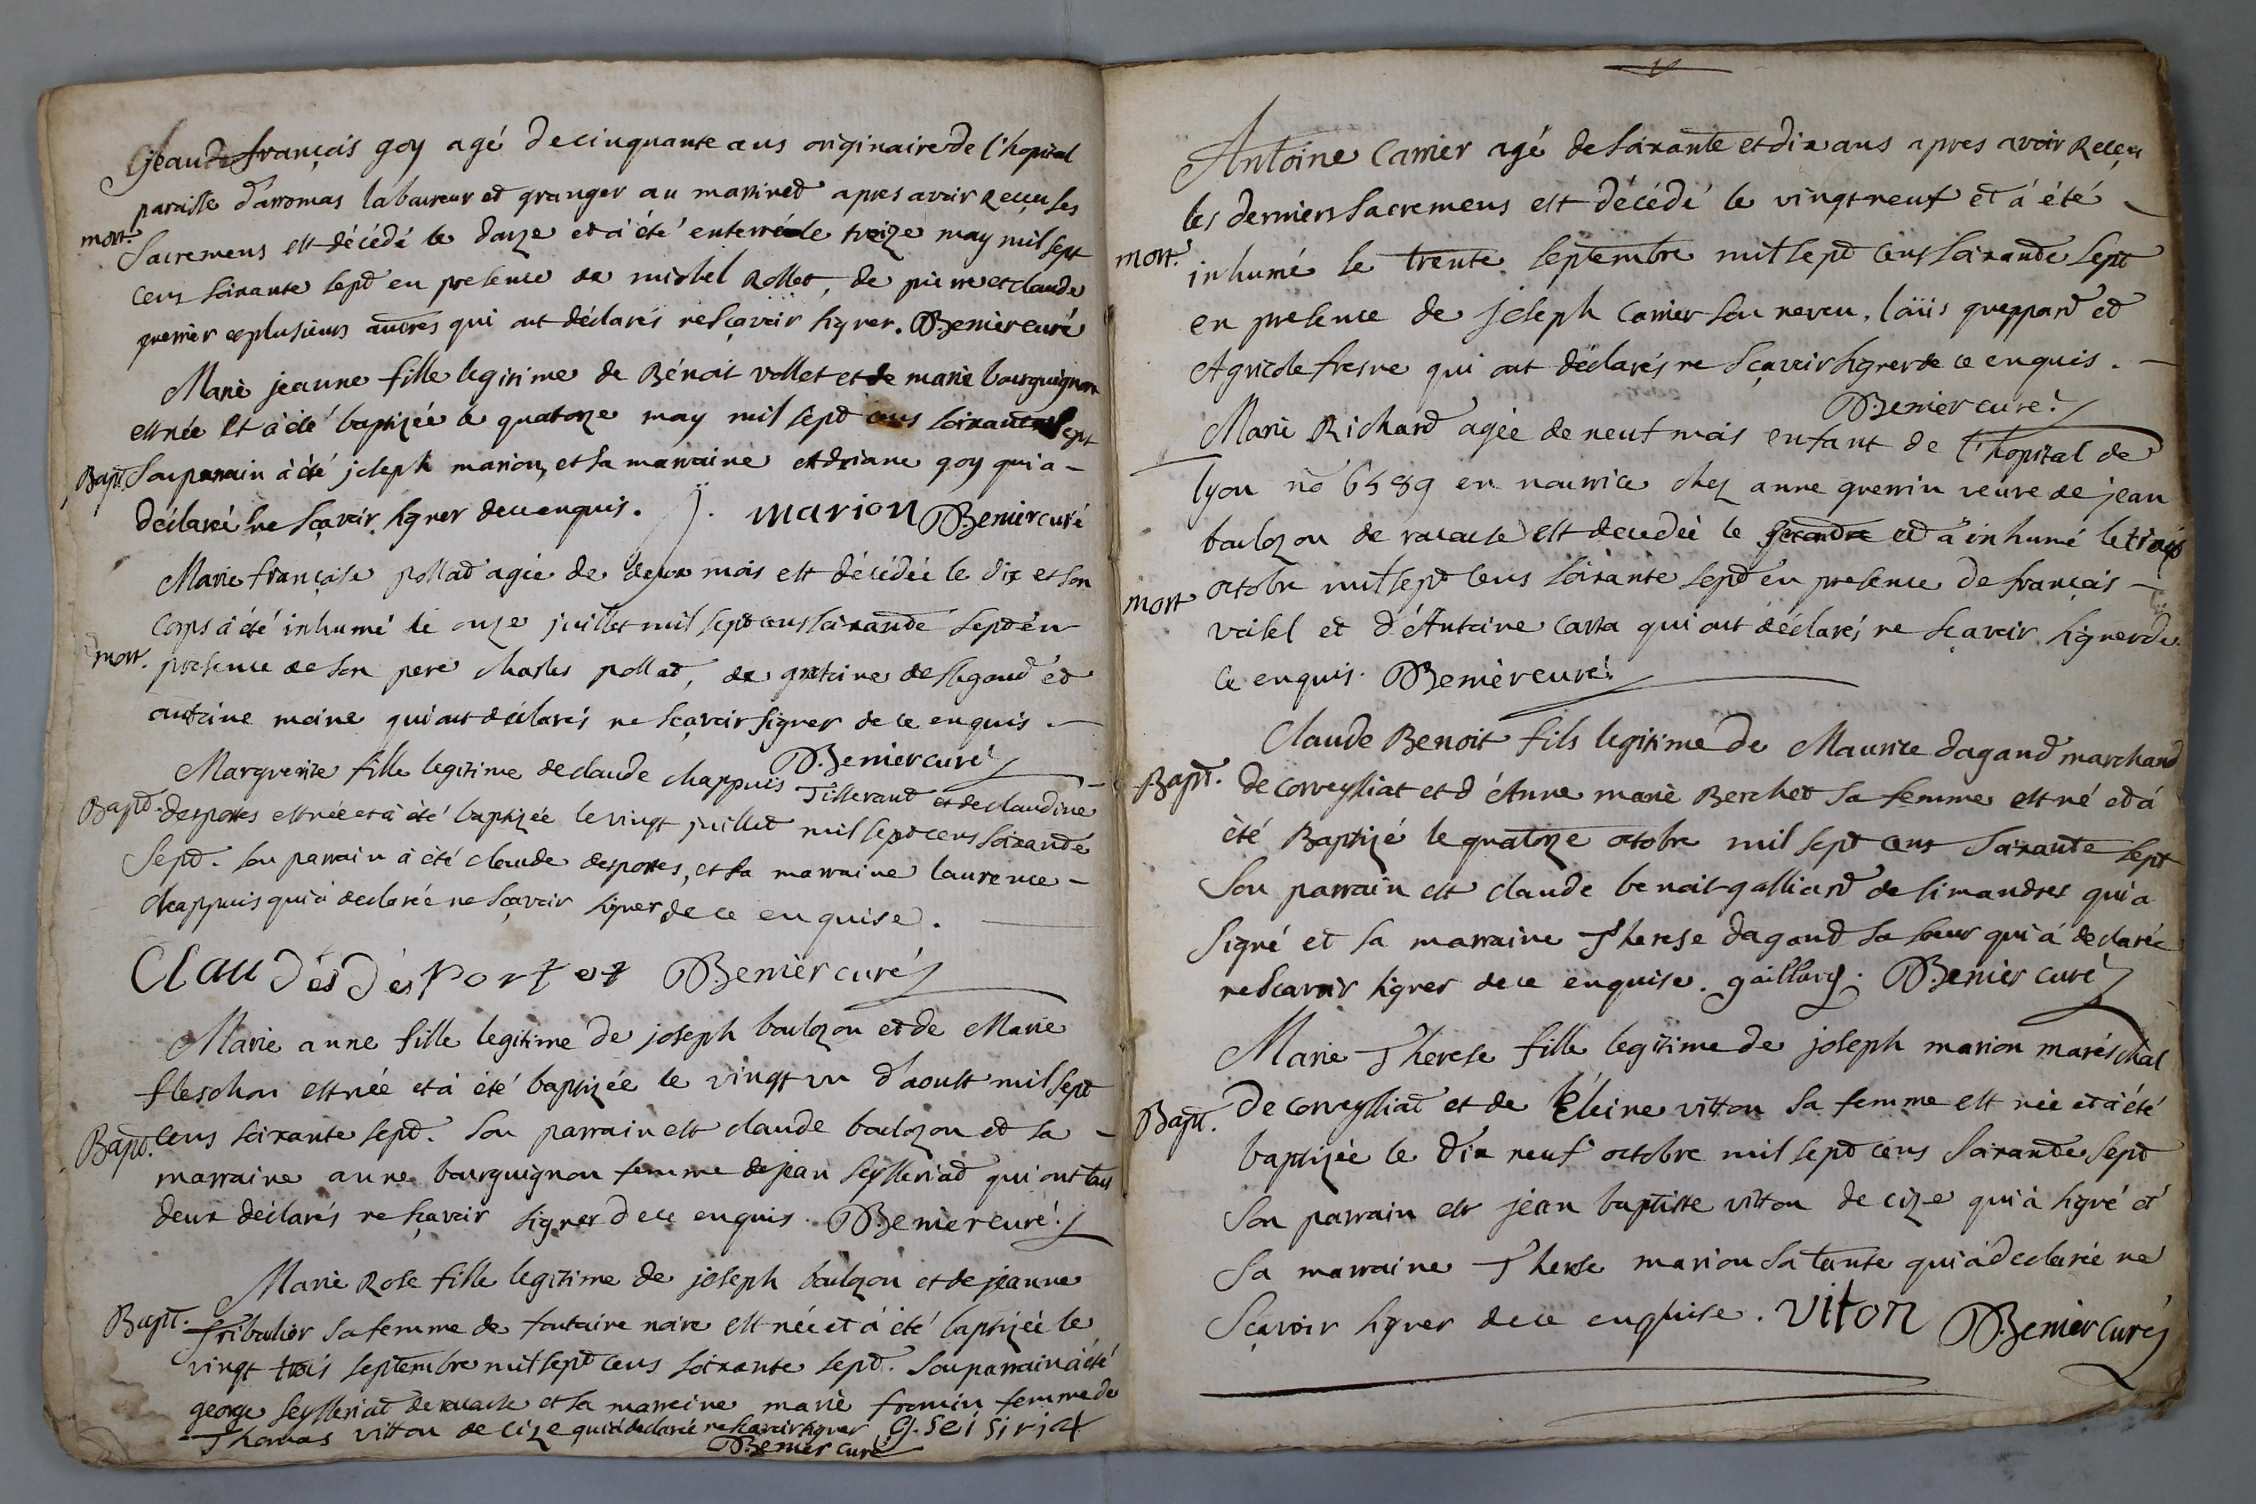 Claude françois goy agé de cinquante ans originaire de l'hopital
paroisse d'arromas laboureur et granger au martinet apres avoir reçeu les
mort. Sacremens est décédé le douze et à été enterré le treize may mil sept
cens soixante sept en presence de michel Rollet, de pierre et claude
perrier et plusieurs autres qui ont déclarés ne sçavoir signer. Benier curé
Marie jeanne fille legitime de Bénoit vollet et de marie bourguignon
est née et à été baptizée le quatorze may mil sept cens soixante sept
Bapt. Son parrain à été joseph marion, et sa marraine adriane goy qui a
déclaré ne sçavoir signer de ce enquis. j. marion Benier curé
Marie françoise pollat agée de deux mois est décédée le dix et son
corps à été inhumé le onze juillet mil sept cens soixante sept en
mort. presence de son pere charles pollat, de antoine de
antoine moine qui ont déclarés ne sçavoir signer de ce enquis.
Benier curé
Marguerite fille legitime de claude chappuis Tisserand et de claudine
Bapt. desportes est née et à été baptizée le vingt juillet mil sept cens soixante
sept. son parrain à été claude desportes, et sa marraine laurence
chappuis qui à declarée ne sçavoir signer de ce enquise.
Claudes desportes Benier curé
Marie anne fille legitime de joseph boulozon et de Marie
fleschon est née et à été baptizée le vingt un d'aoust mil sept
Bapt. cens soixante sept. son parrain est claude boulozon et sa
marraine anne bourguignon femme de jean seysseriat qui ont tous
deux déclarés ne sçavoir signer de ce enquis. Benier curé
Marie Rose fille legitime de joseph boulozon et de jeanne
Bapt. tribolier sa femme de fontaine noire est née et à été baptizée le
vingt trois septembre mil sept cens soixante sept. son parrain à été
george seysseriat de racouse et sa marraine marie fromin femme de
Thomas vitton de cize qui à déclarée ne sçavoir signer G. Sei siriat
Benier curé
Antoine Carrier agé de soixante et dix ans apres avoir reçeu
les derniers sacremens est décédé le vingt neuf et à été
mort. inhumé le trente septembre mil sept cens soixante sept
en presence de joseph Carrier son neveu, loüis queppard et
Agricole fresne qui ont déclarés ne sçavoir signer de ce enquis.
Benier curé
Marie Richard agée de neuf mois enfant de l'hopital de
lyon no 6589 en nourrice chez anne guerrin veuve de jean
boulozon de racouse est decedée le et à inhumé le trois
mort octobre mil sept cens soixante sept en presence de françois
voisel et d'Antoine Carra qui ont déclarés ne sçavoir signer de
ce enquis. Benier curé
Claude Benoit fils legitime de Maurice dagand marchand
Bapt. de corveyssiat et d'Anne marie Berchet sa femme est né et à
été Baptizé le quatorze octobre mil sept cens soixante sept
Son parrain est claude benoit galliard de simandres qui a
signé et sa marraine Therese dagand sa soeur qui à declarée
ne sçavoir signer de ce enquise. gaillard. Benier curé
Marie Therese fille legitime de joseph marion maréschal
Bapt. de corveyssiat et de héleine vitton sa femme est née et à été
baptizée le dix neuf octobre mil sept cens soixante sept
son parrain est jean baptiste vitton de cize qui à signé et
sa marraine Therese marion sa tante qui à declarée ne
sçavoir signer de ce enquise. viton Benier curé